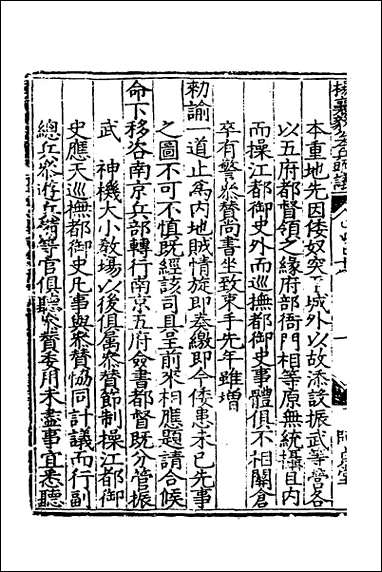 本重地先因倭奴突至城外以故添設振武等營各
以五府都督領之緣府部衙門相等原無統攝且内
而操江都御史外而巡撫都御史事體俱不相關倉
卒有警叅賛尚書坐致束手先年雖增
勑諭一道止為内地賊情旋即奏繳即今倭患未已先事
之圖不可不慎既經該司具呈前來相應題請合候
命下移咨南京兵部轉行南京五府僉書都督既分管振
武　神機大小敎場以後俱属叅賛節制操江都御
史應天巡撫都御史凡事與叅賛協同計議而行副
總兵叅逰兵備等官俱聽叅賛委用未盡事宜悉聽